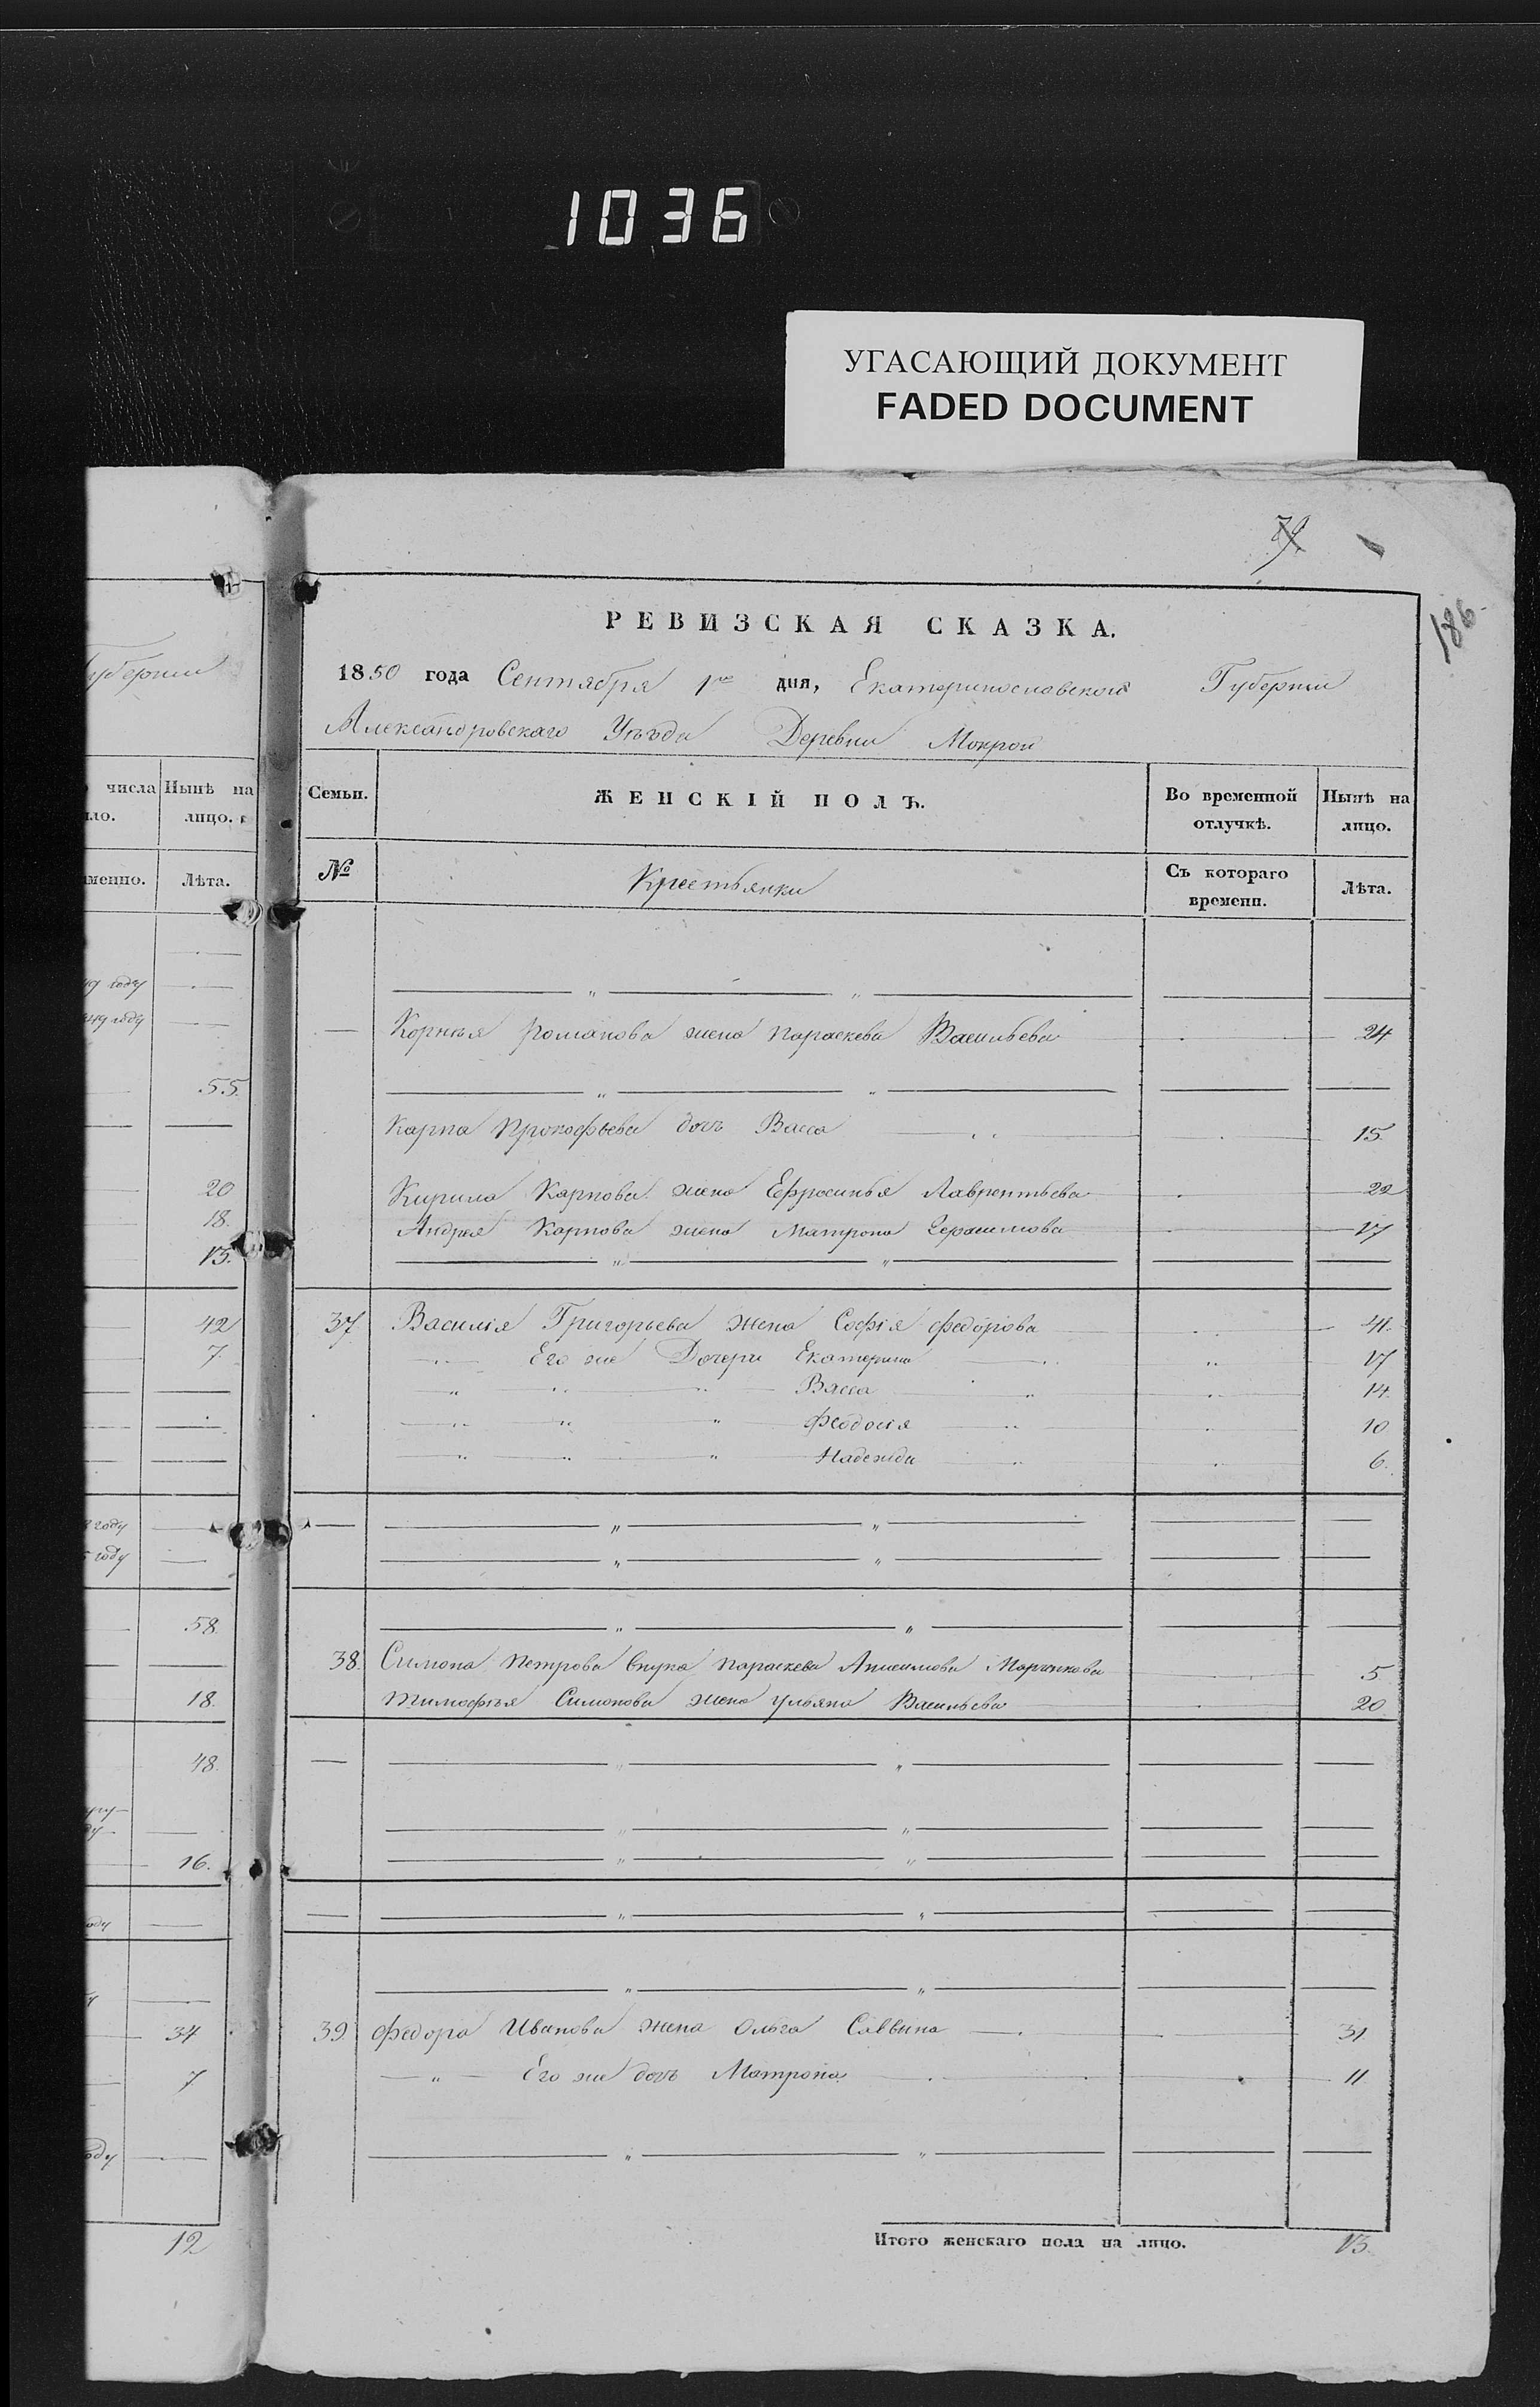 1036
УГАСАЮЩИЙ ДОКУМЕНТ
FADED DOCUMENT
186
РЕВИЗСКАЯ СКАЗКА.
1850 года Сентября 1го дня, Екатеринославской Губернии
Александровскаго Уѣзда Деревни Мокрой
Губернии
числа Нынѣ на
ло. лицо.
именно. Лѣта.
году
году
55.
20
18.
13.
42
7.
году
году
58.
18.
48.
16.
34
7
оду
12
Семьи. ЖЕНСКІЙ ПОЛЪ. Во временной отлучкѣ. Нынѣ на лицо.
№ Крестьянки Съ котораго времени. Лѣта.
Корнѣя Романова жена Параскева Васильева 24
Карпа Прокофьева дочь Васса 15
Кирила Карпова жена Ефросинья Лаврентьева 22
Андрея Карпова жена Матрона Герасимова 17
37 Василія Григорьева жена Софія Федорова 41.
Его же Дочери Екатерина 17
Васса 14
Феодосія 10
Надежда 6.
38. Симона Петрова внука Параскева Анисимова 5
Тимофѣя Симонова жена Ульяна Васильева 20
39 Федора Иванова жена Ольга Саввина 31
Его же дочь Матрона 11
Итого женскаго пола на лицо. 13.